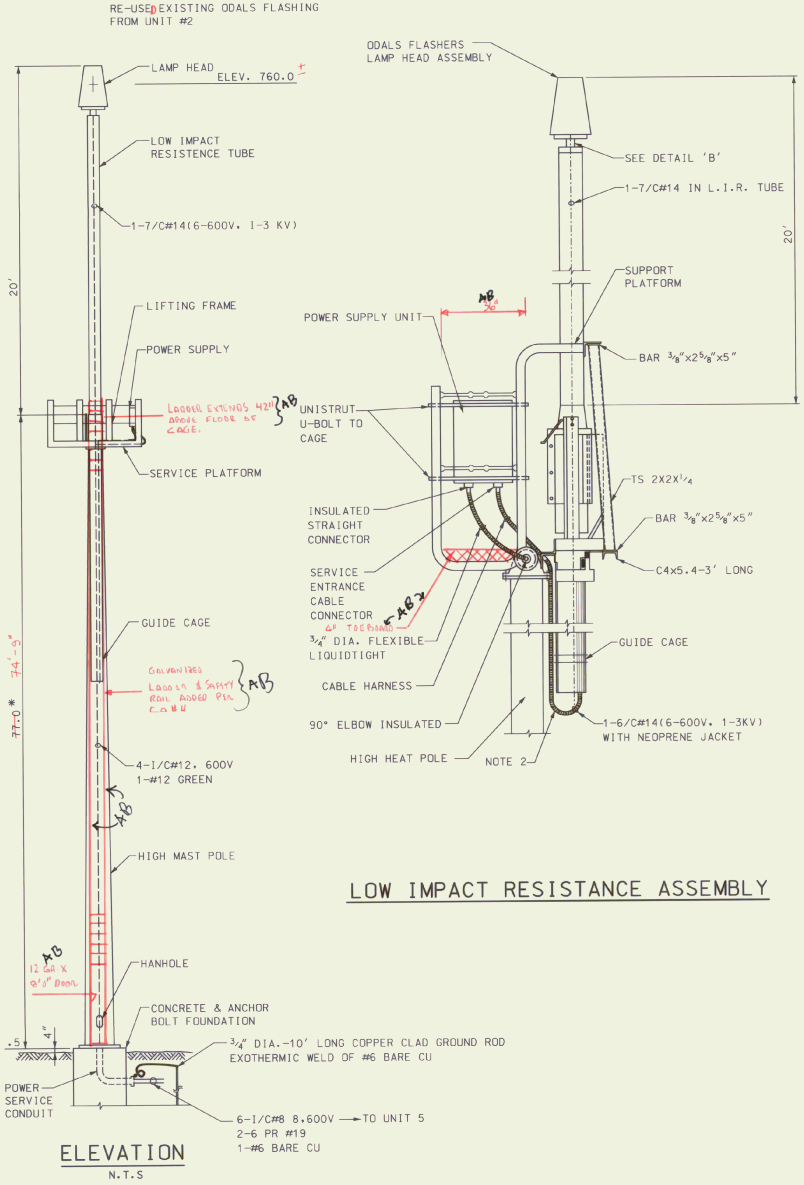 RE-USED EXISTING ODALS FLASHING
FROM UNIT #2
LAMP HEAD
ELEV. 760.0 ±
LOW IMPACT
RESISTENCE TUBE
1-7/C#14(6-600V, 1-3 KV)
20'
LIFTING FRAME
POWER SUPPLY
LADDER EXTENDS 42"
ABOVE FLOOR OF
CAGE.
AB
SERVICE PLATFORM
GUIDE CAGE
GALVANIZED
LADDER & SAFETY
RAIL ADDED PER
AB
77.0 *
74'-9"
4-1/C#12, 600V
1-#12 GREEN
AB
HIGH MAST POLE
AB
12 GA X
DOOR
HANHOLE
CONCRETE & ANCHOR
BOLT FOUNDATION
.5
4"
3/4" DIA.-10' LONG COPPER CLAD GROUND ROD
EXOTHERMIC WELD OF #6 BARE CU
POWER
SERVICE
CONDUIT
6-1/C#8 8,600V TO UNIT 5
2-6 PR #19
1-#6 BARE CU
ELEVATION
N.T.S
ODALS FLASHERS
LAMP HEAD ASSEMBLY
SEE DETAIL 'B'
1-7/C#14 IN L.I.R. TUBE
20'
SUPPORT
PLATFORM
AB
36"
POWER SUPPLY UNIT
BAR 3/8"x2 5/8"x5"
UNISTRUT
U-BOLT TO
CAGE
TS 2X2X1/4
INSULATED
STRAIGHT
CONNECTOR
BAR 3/8"x2 5/8"x5"
C4x5.4-3' LONG
SERVICE
ENTRANCE
CABLE
CONNECTOR
AB
TOEBOARD
3/4" DIA. FLEXIBLE
LIQUIDTIGHT
GUIDE CAGE
CABLE HARNESS
90° ELBOW INSULATED
1-6/C#14(6-600V, 1-3KV)
WITH NEOPRENE JACKET
HIGH HEAT POLE
NOTE 2
LOW IMPACT RESISTANCE ASSEMBLY